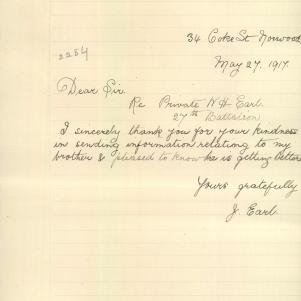 34 Coke St Norwood
2254
May 27. 1917.
Dear Sir.
Re Private N H Earl.
27th Battalion
I sincerely thank you for your kindness
in sending information relating to my
brother & pleased to know he is getting better
Yours gratefully
J. Earl.